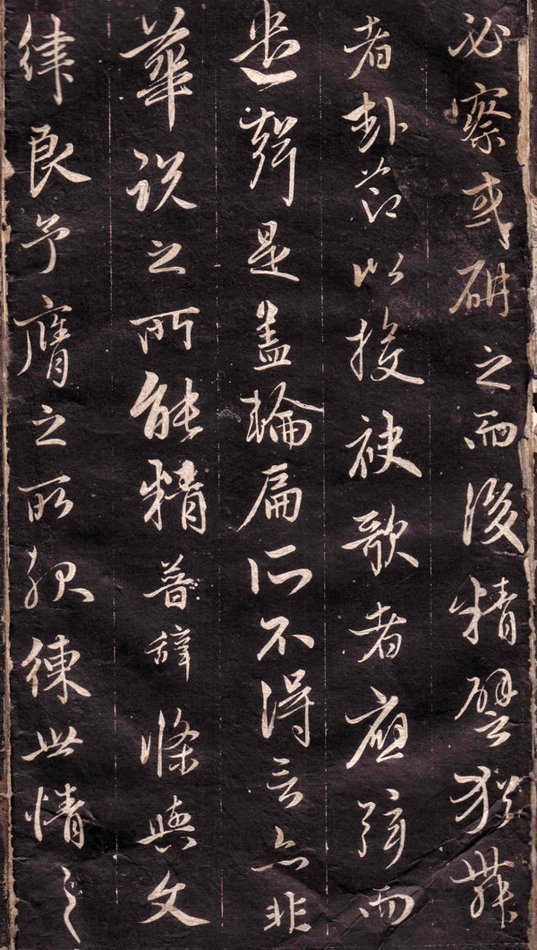 必察或研之而後精譬猶舞
者赴節以投袂歌者應絃而
遣聲是蓋輪扁所不得言亦非
華說之所能精普辭條與文
律良予膺之所服練世情之